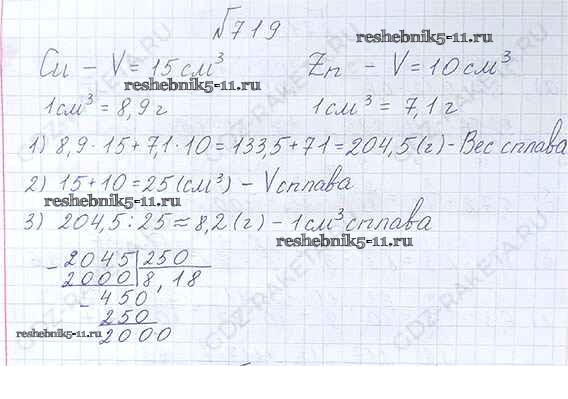 №719
reshebnik5-11.ru
Cu - V = 15 см³ Zn - V = 10 см³
reshebnik5-11.ru
1 см³ = 8,9 г 1 см³ = 7,1 г
1) 8,9 · 15 + 7,1 · 10 = 133,5 + 71 = 204,5 (г) - Вес сплава
2) 15 + 10 = 25 (см³) - V сплава
reshebnik5-11.ru
3) 204,5 : 25 ≈ 8,2 (г) - 1 см³ сплава
reshebnik5-11.ru
- 2045 | 250
2000 | 8,18
- 450
250
reshebnik5-11.ru 2000
GDZ-RAKETA.RU